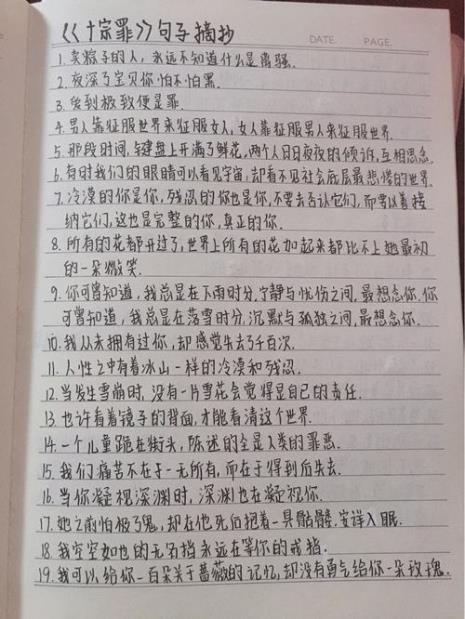 《《十宗罪》》句子摘抄
DATE. PAGE.
1. 卖粽子的人，永远不知道什么是离骚.
2. 夜深了宝贝你怕不怕黑.
3. 爱到极致便是罪.
4. 男人靠征服世界来征服女人，女人靠征服男人来征服世界.
5. 那段时间，键盘上开满了鲜花，两个人日日夜夜的倾诉，互相思念.
6. 有时我们的眼睛可以看见宇宙，却看不见社会底层最悲惨的世界.
7. 冷漠的你是你，残忍的你也是你，不要去否认它们，而要以善接
纳它们，这也是完整的你，真正的你.
8. 所有的花都开过了，世界上所有的花加起来都比不上她最初
的一朵微笑.
9. 你可曾知道，我总是在下雨时分，宁静与忧伤之间，最想念你.你
可曾知道，我总是在落雪时分，沉默与孤独之间，最想念你.
10. 我从未拥有过你，却感觉失去了千百次.
11. 人性之中有着冰山一样的冷漠和残忍.
12. 当发生雪崩时，没有一片雪花会觉得是自己的责任.
13. 也许看着镜子的背面，才能看清这个世界.
14. 一个儿童跪在街头，陈述的全是人类的罪恶.
15. 我们痛苦不在于一无所有，而在于得到后失去.
16. 当你凝视深渊时，深渊也在凝视你.
17. 她之前怕极了鬼，却在他死后抱着一具骷髅，安详入眠.
18. 我空空如也的无名指永远在等你的戒指.
19. 我可以给你一百朵关于蔷薇的记忆，却没有勇气给你一朵玫瑰.